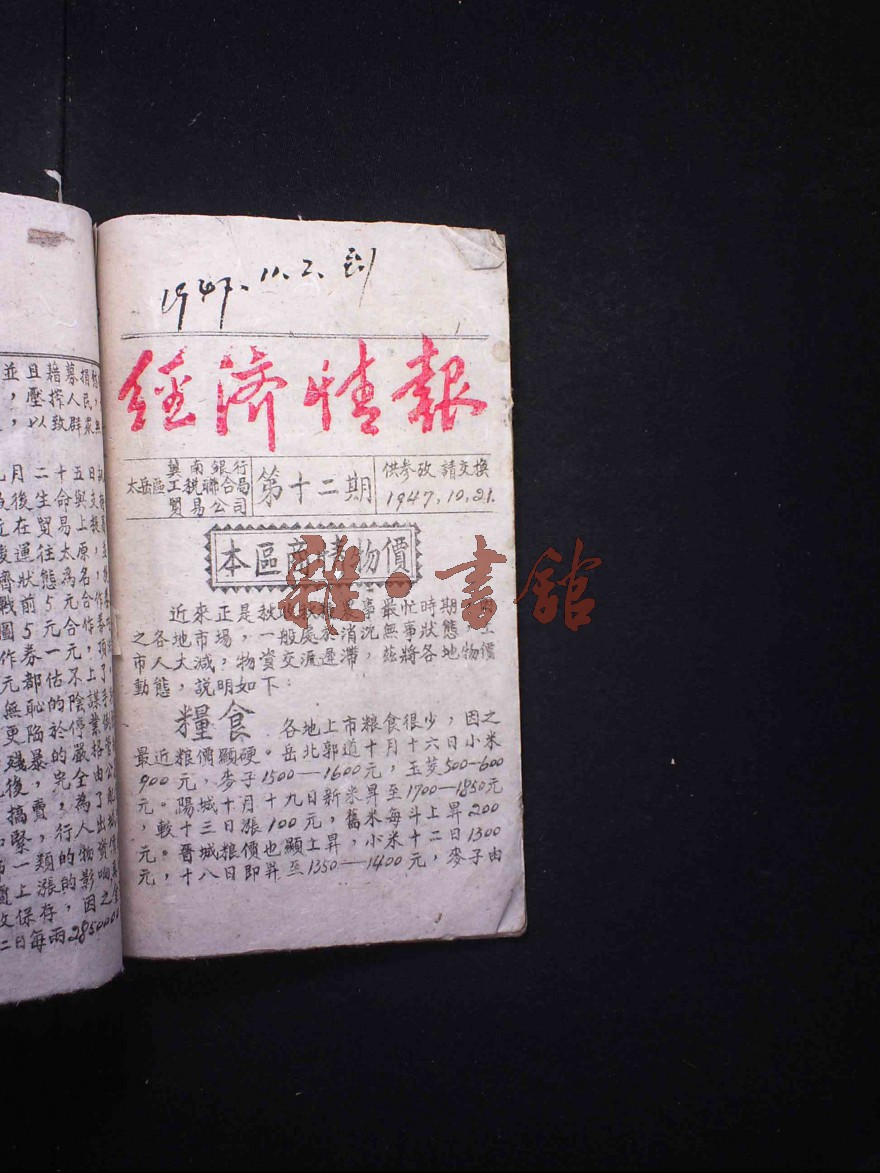 1947.11.2.到
經濟情報
冀南銀行
太岳區工稅聯合局
貿易公司
第十二期
供參攷 請交換
1947.10.21.
本區商情物價
雜·書館
近來正是秋收
事最忙時期
之各地市場，一般處於消沉無事狀態
市人大減，物資交流遲滯，茲將各地物價
動態，説明如下：
糧食 各地上市粮食很少，因之
最近粮價顯硬。岳北郭道十月十六日小米
900元，麥子1500—1600元，玉茭500—600
元。陽城十月十九日新米昇至1700—1850元
，較十三日漲100元，舊米每斗上昇200
元。晋城粮價也顯上昇，小米十二日1300
元，十八日即昇至1350—1400元，麥子由
並且藉募捐
，壓搾人民，
，以致群衆無
月二十五日
後生命與
在貿易上
運往太原，
濟狀態為名，
戰前5元合作
圖5元合作
作券一元，頂
元都估不上了
無恥的陰謀手
更陷於停業
殘暴的嚴格
後，完全由公
搞賣，為了
緊，行人出
一類的物資
上漲的影响
保存，因之
二日每兩2850000